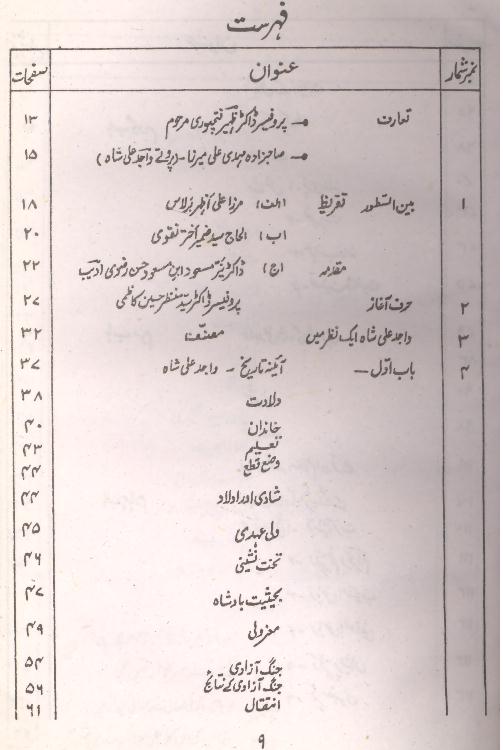 فہرست
نمبر شمار عنوان صفحات
تعارف ۔ پروفیسر ڈاکٹر ظہیر فتحپوری مرحوم ۱۳
۔ صاحبزادہ مہدی علی میرزا ۔ (پڑوتے واجد علی شاہ) ۱۵
۱ بین السطور تقریظ (الف) مرزا علی اظہر برلاس ۱۸
(ب) الحاج سید ضمیر اختر نقوی ۲۰
مقدمہ (ج) ڈاکٹر نیّر مسعود ابن مسعود حسن رضوی ادیب ۲۲
۲ حرف آغاز پروفیسر ڈاکٹر سید منظر حسین کاظمی ۲۷
۳ واجد علی شاہ ایک نظر میں مصنف ۳۲
۴ باب اوّل — آئینہ تاریخ ۔ واجد علی شاہ ۳۷
ولادت ۳۸
خاندان ۴۰
تعلیم ۴۳
وضع قطع ۴۴
شادی اور اولاد ۴۴
ولی عہدی ۴۵
تخت نشینی ۴۶
بحیثیت بادشاہ ۴۷
معزولی ۴۹
جنگ آزادی ۵۴
جنگ آزادی کے نتائج ۵۶
انتقال ۶۱
۹